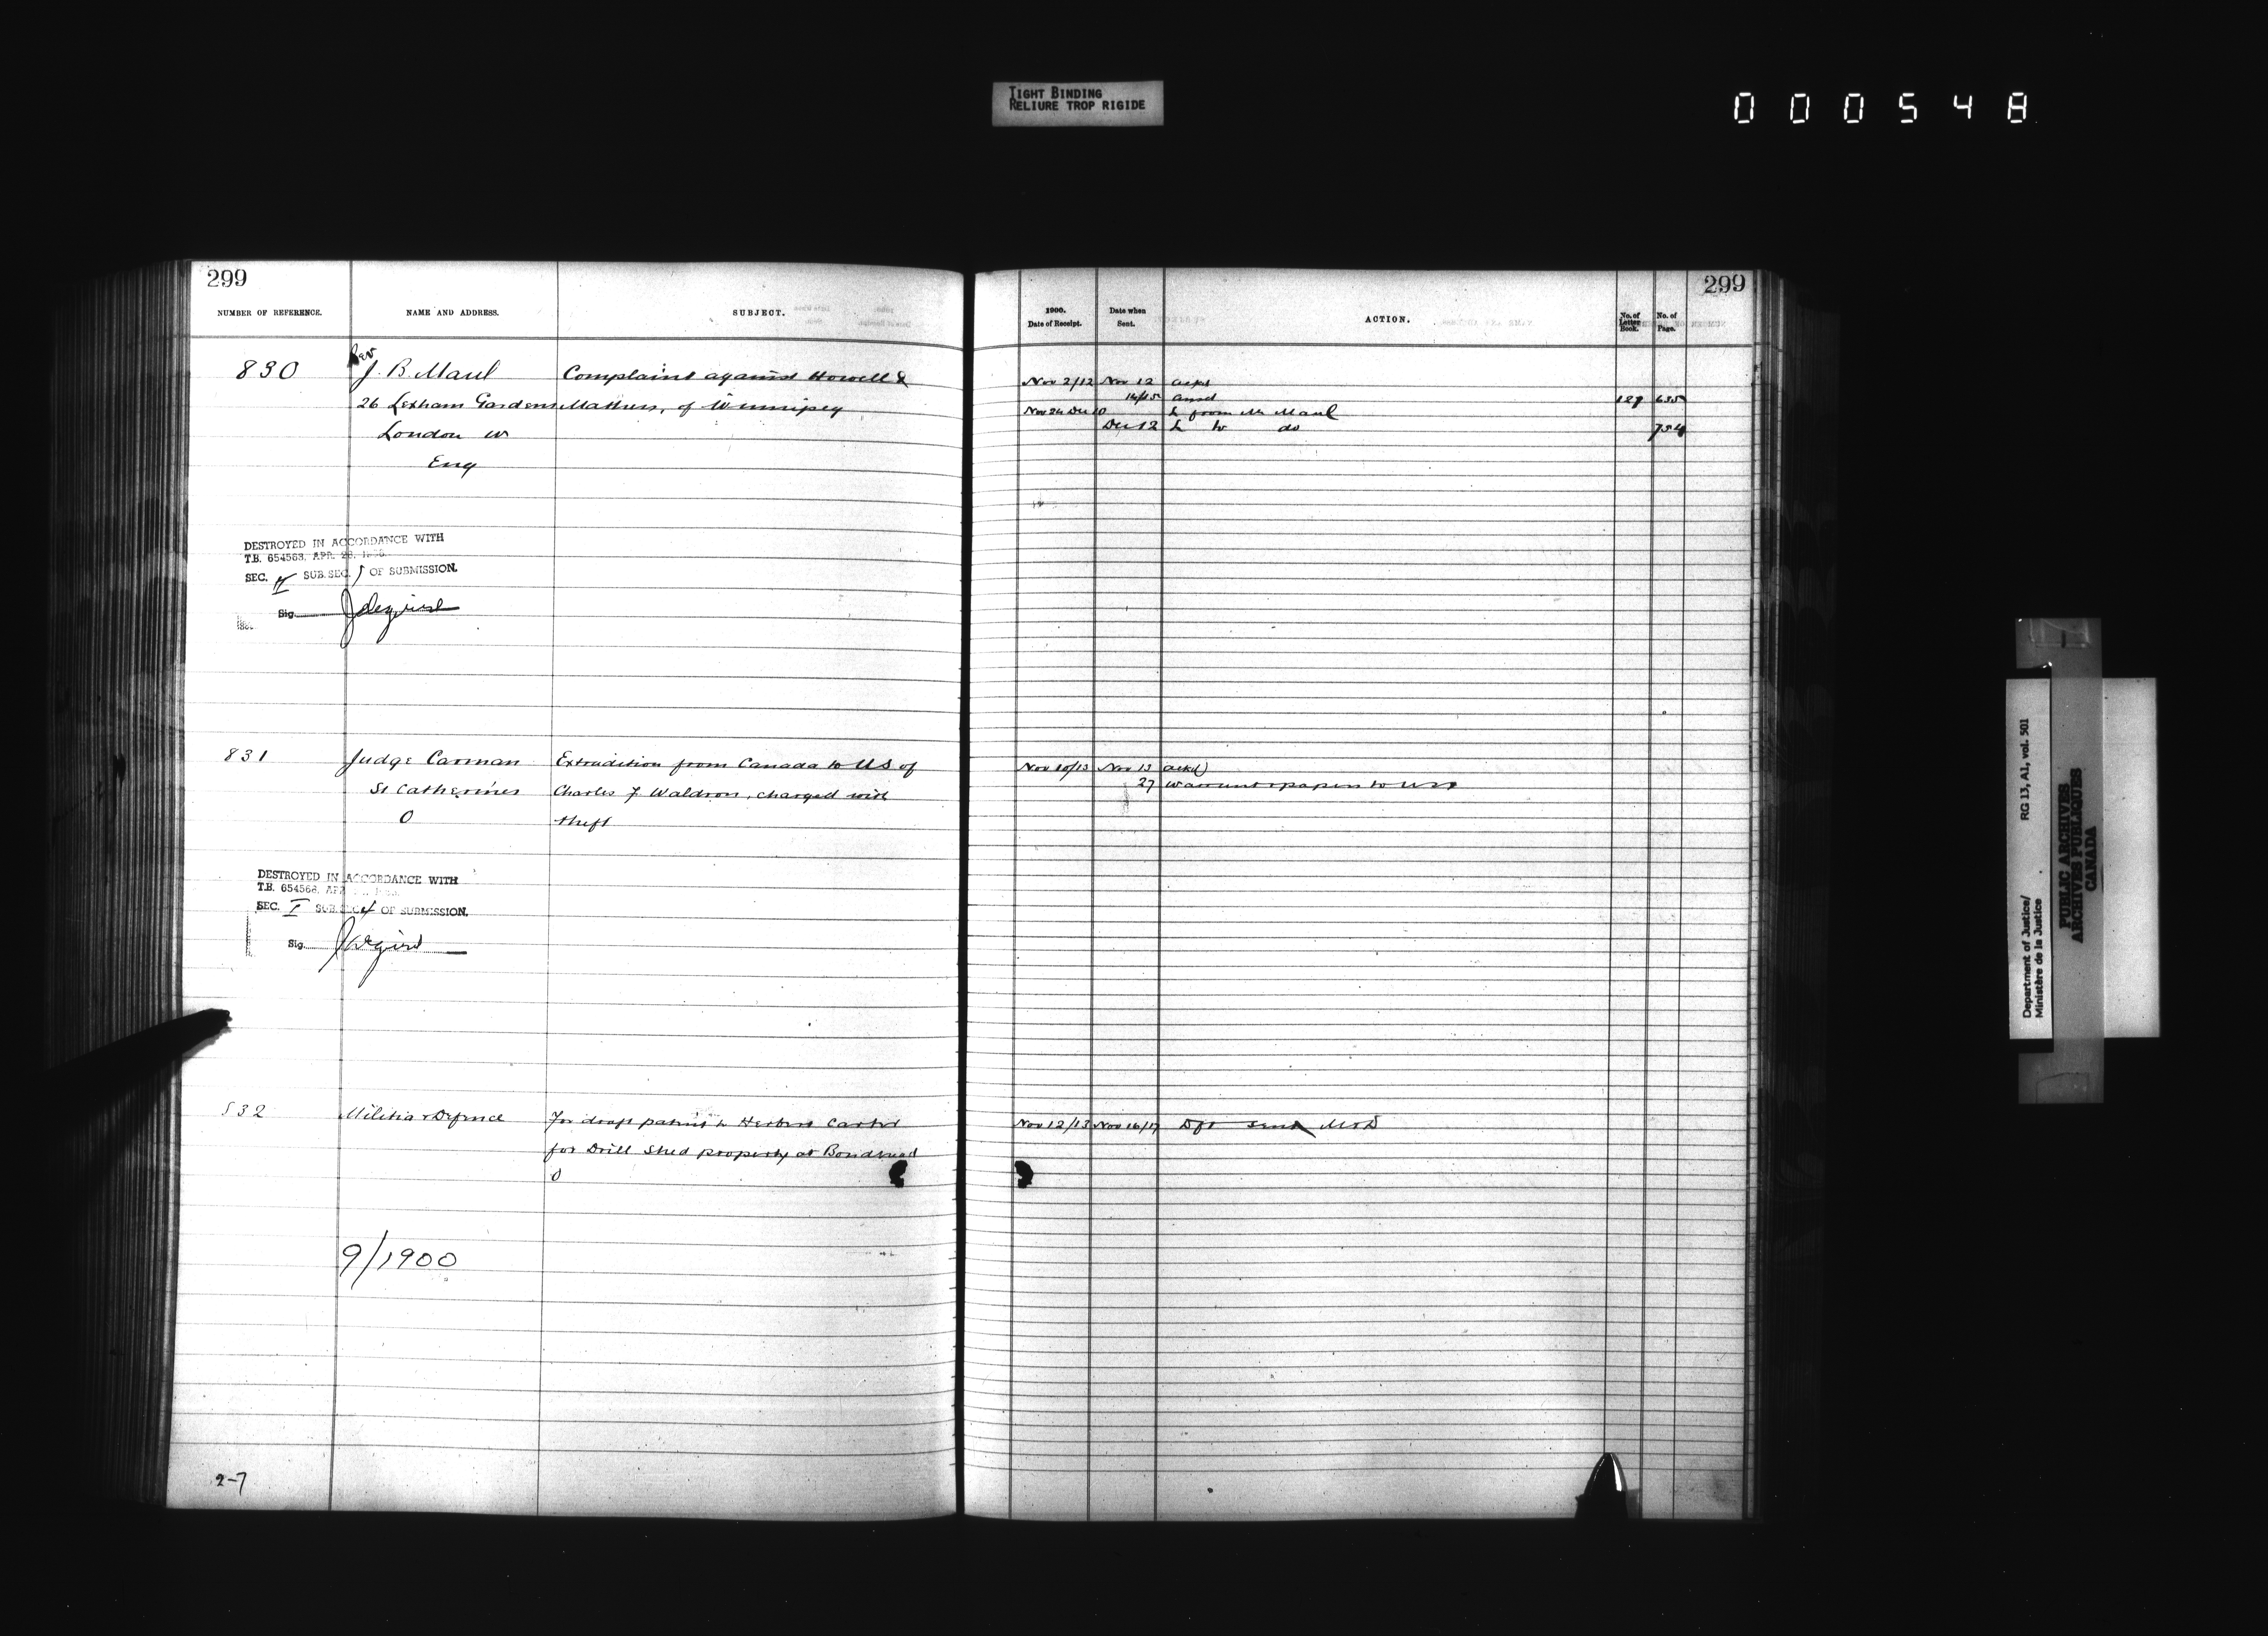 TIGHT BINDING
RELIURE TROP RIGIDE
000548
299
NUMBER OF REFERENCE. NAME AND ADDRESS. SUBJECT.
830 Rev J. B. Maul Complaint against Howell &
26 Lexham Gardens Mathers, of Winnipeg
London W
Eng
DESTROYED IN ACCORDANCE WITH
T.B. 654563. APR. 28.
SEC. II SUB. SEC. OF SUBMISSION.
Sig.
831 Judge Carman Extradition from Canada to US of
St Catherines Charles F Waldron, charged with
O theft
DESTROYED IN ACCORDANCE WITH
T.B. 654563. APR
SEC. I SUB. SEC. 4 OF SUBMISSION.
Sig.
832 Militia & Defence For draft patent to Herbert Carter
for Drill Shed property at Bondhead
O
9/1900
2-7
299
1900. Date of Receipt. Date when Sent. ACTION. No. of Letter Book. No. of Page.
Nov 2/12 Nov 12 ackd
14/15 ansd 127 635
Nov 24 Dec 10 L from Mr Maul
Dec 12 L to do 754
Nov 10/13 Nov 13 ackd
27 warrant & papers to USA
Nov 12/13 Nov 16/17 Dft sent M&D
Department of Justice/ RG 13, A1, vol. 501
Ministère de la Justice
PUBLIC ARCHIVES
ARCHIVES PUBLIQUES
CANADA